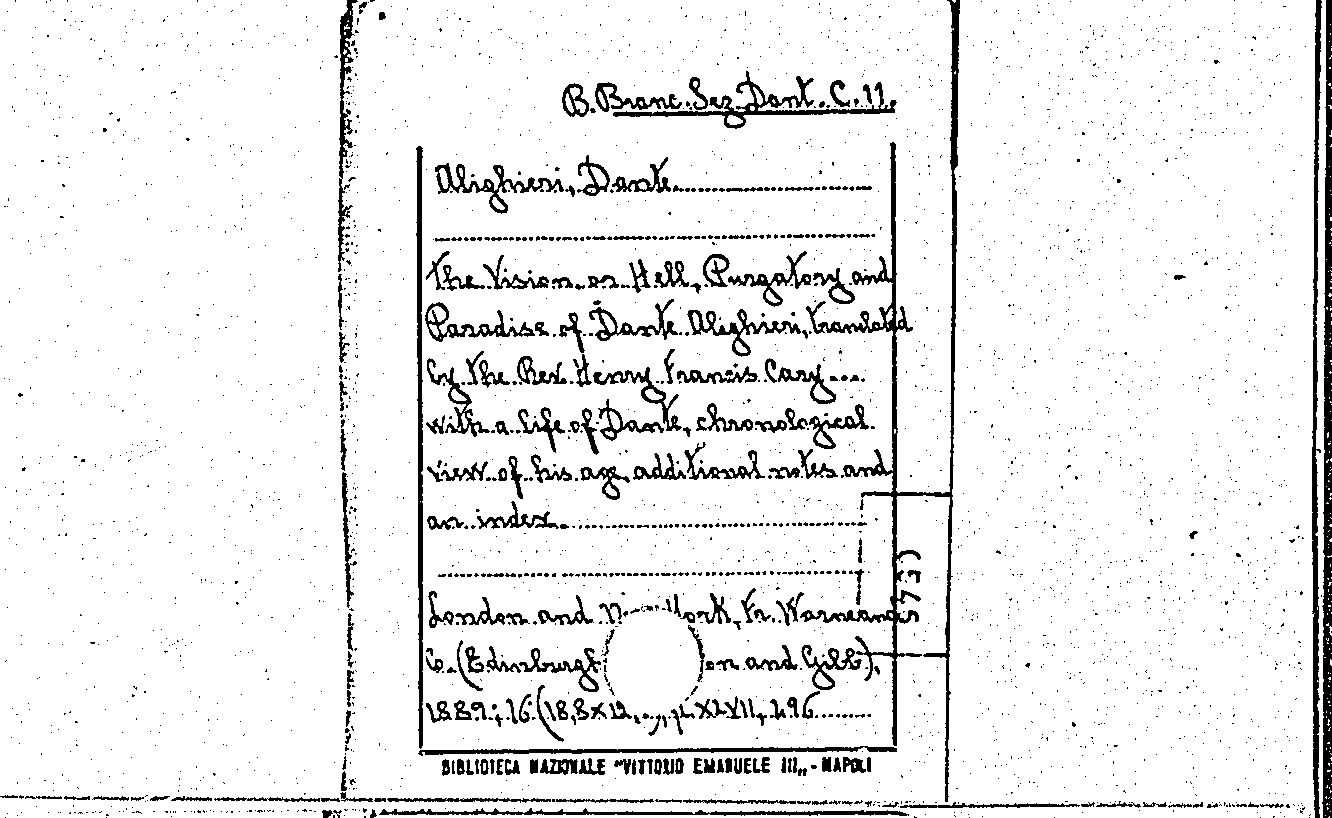 B. Branc. Sez. Dant. C. 11.
Alighieri, Dante
The Vision or Hell, Purgatory and
Paradise of Dante Alighieri, translated
by the Rev. Henry Francis Cary...
with a life of Dante, chronological
view of his age, additional notes and
an index.
London and York, Fr. Warne and
Co. (Edinburgh and Gibb),
1889; 16° (18,8×12, p. XLVII, 496
BIBLIOTECA NAZIONALE "VITTORIO EMANUELE III„ - NAPOLI